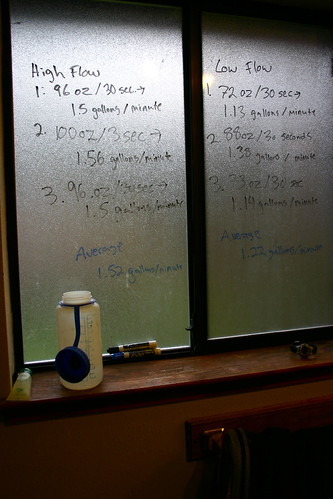 High Flow
1: 96 oz / 30 sec →
1.5 gallons / minute
2. 100oz / 3 sec →
1.56 gallons / minute
3. 96.oz / 30sec →
1.5 gallons / minute
Average
1.52 gallons / minute
Low Flow
1. 72oz / 30sec →
1.13 gallons / minute
2. 88oz / 30 seconds
1.38 gallons / minute
3. 73oz / 30 sec
1.14 gallons / minute
Average
1.22 gallons / minute